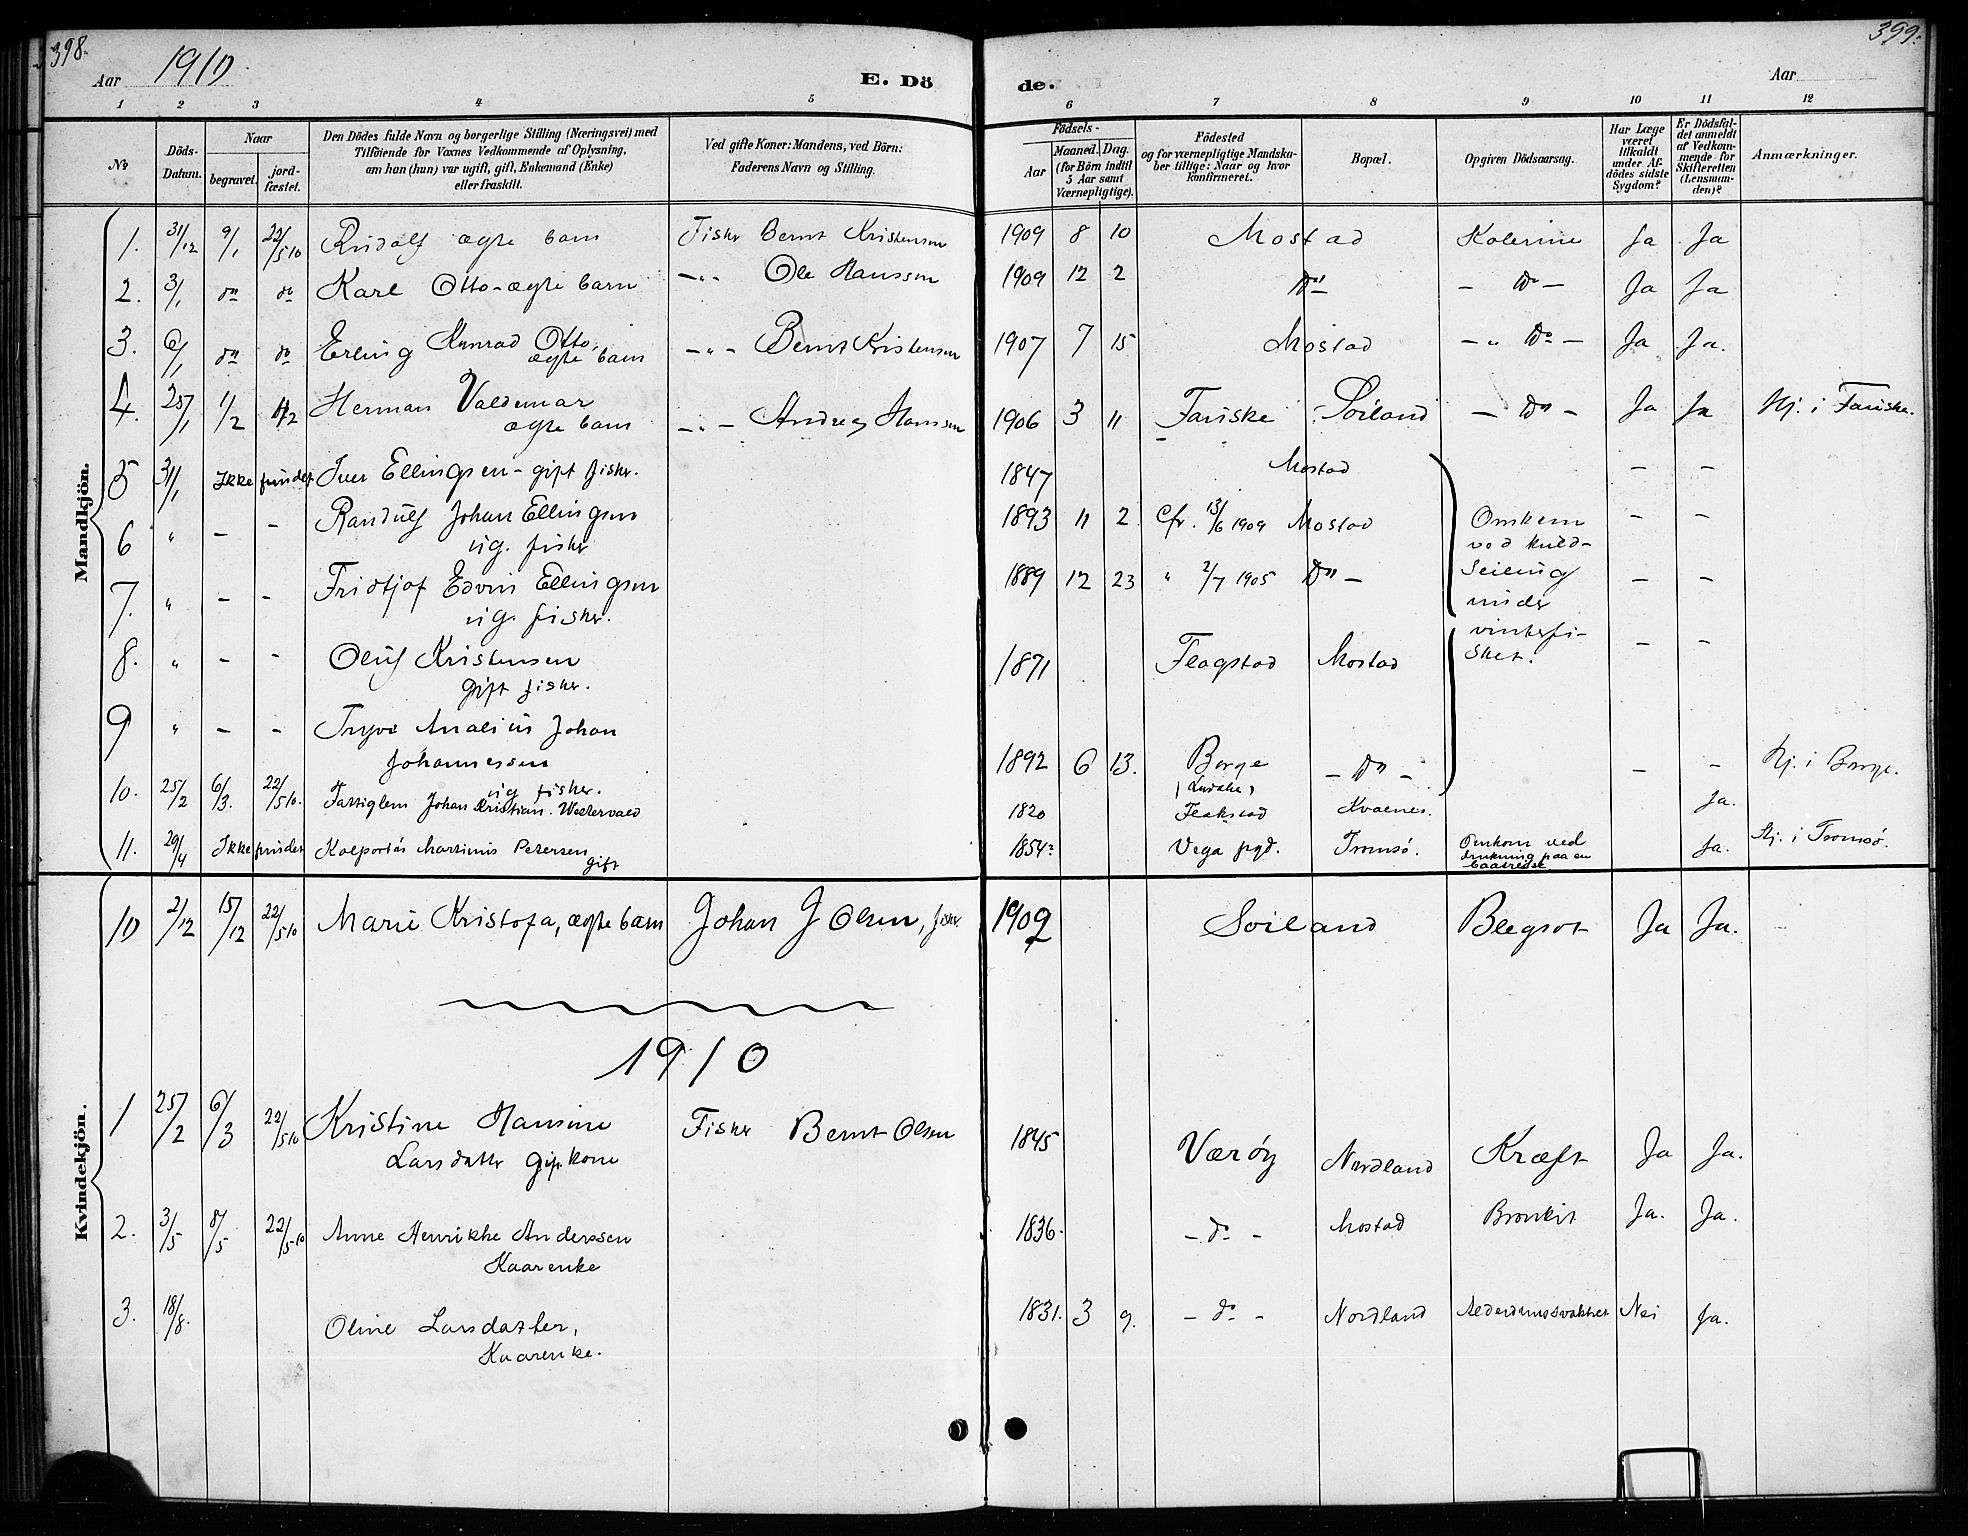 398.
399.
Aar 1910
E. Dö de.
Aar
1 2 3 4 5 6 7 8 9 10 11 12
No.
Döds-Datum.
Naar
begravet.
jord-fæstet.
Den Dödes fulde Navn og borgerlige Stilling (Næringsvei) med
Tilföiende for Voxnes Vedkommende af Oplysning,
om han (hun) var ugift, gift, Enkemand (Enke)
eller fraskilt.
Ved gifte Koner: Mandens, ved Börn:
Faderens Navn og Stilling.
Födsels-
Aar
Maaned. Dag.
(for Börn indtil
5 Aar samt
Værnepligtige).
Födested
og for værnepligtige Mandska-
ber tillige: Naar og hvor
konfirmeret.
Bopæl.
Opgiven Dödsaarsag.
Har Læge
været
tilkaldt
under Af-
dödes sidste
Sygdom?
Er Dödsfal-
det anmeldt
af Vedkom-
mende for
Skifteretten
(Lensman-
den)?
Anmærkninger.
Mandkjön.
1. 31/12 9/1 22/5 10 Rudolf ægte barn Fisker Bernt Kristensen 1909 8 10 Mostad Kolerine Ja Ja
2. 3/1 do do Karl Otto - ægte barn -"- Ole Hanssen 1909 12 2 Do - Do - Ja Ja
3. 6/1 do do Erling Konrad Otto,
ægte barn -"- Bernt Kristensen 1907 7 15 Mostad -"- Do - Ja Ja.
4. 25/1 1/2 1/2 Herman Valdemar
ægte barn -"- Andreas Hanssen 1906 3 11 Fauske Söiland - Do - Ja Ja Hj. i Fauske.
5 31/1 Ikke fundet Iver Ellingsen - gift fisker. 1847 Mostad - -
6 " - - Randulf Johan Ellingsen
ug. fisker 1893 11 2 Cfr. 13/6 1909 Mostad - -
7. " - - Fridtjof Edvin Ellingsen
ug. fisker. 1889 12 23 " 2/7 1905 Do - - -
8. " - - Oluf Kristensen
gift fisker. 1871 Flagstad Mostad - -
Omkom
ved kuld-
seiling
under
vinterfi-
sket.
9 " - - Trygve Analius Johan
Johannessen
ug fisker. 1892 6 13. Borge - Do - - - Hj. i Borge.
10. 25/2 6/3. 22/5 10. Fattiglem Johan Kristian 1820 Flakstad Kvaenes. Ja.
11. 29/4 Ikke fundet Kolportör Martinus Petersen
gift 1854? Vega pgd. Tromsö. Omkom ved
drukning paa en
baatreise Ja. Hj. i Tromsö.
Kvindekjön.
10 2/12 15/12 22/5 10 Marie Kristofa, ægte barn Johan J Olsen, fisker 1909 Soiland Blegsot Ja Ja.
1910
1 25/2 6/3 22/5 10 Kristine Hansine
Larsdatter gift kone Fisker Bernt Olsen 1845 Værøy Nordland Kræft Ja Ja.
2. 3/5 8/5 22/5 10 Anne Henrikke Anderssen
Kaarenke 1836. - do - Mostad Bronkit Ja. Ja.
3. 18/8. Oline Larsdatter,
Kaarenke. 1831. 3 9. - do - Nordland Alderdomssvakhet Nei Ja.